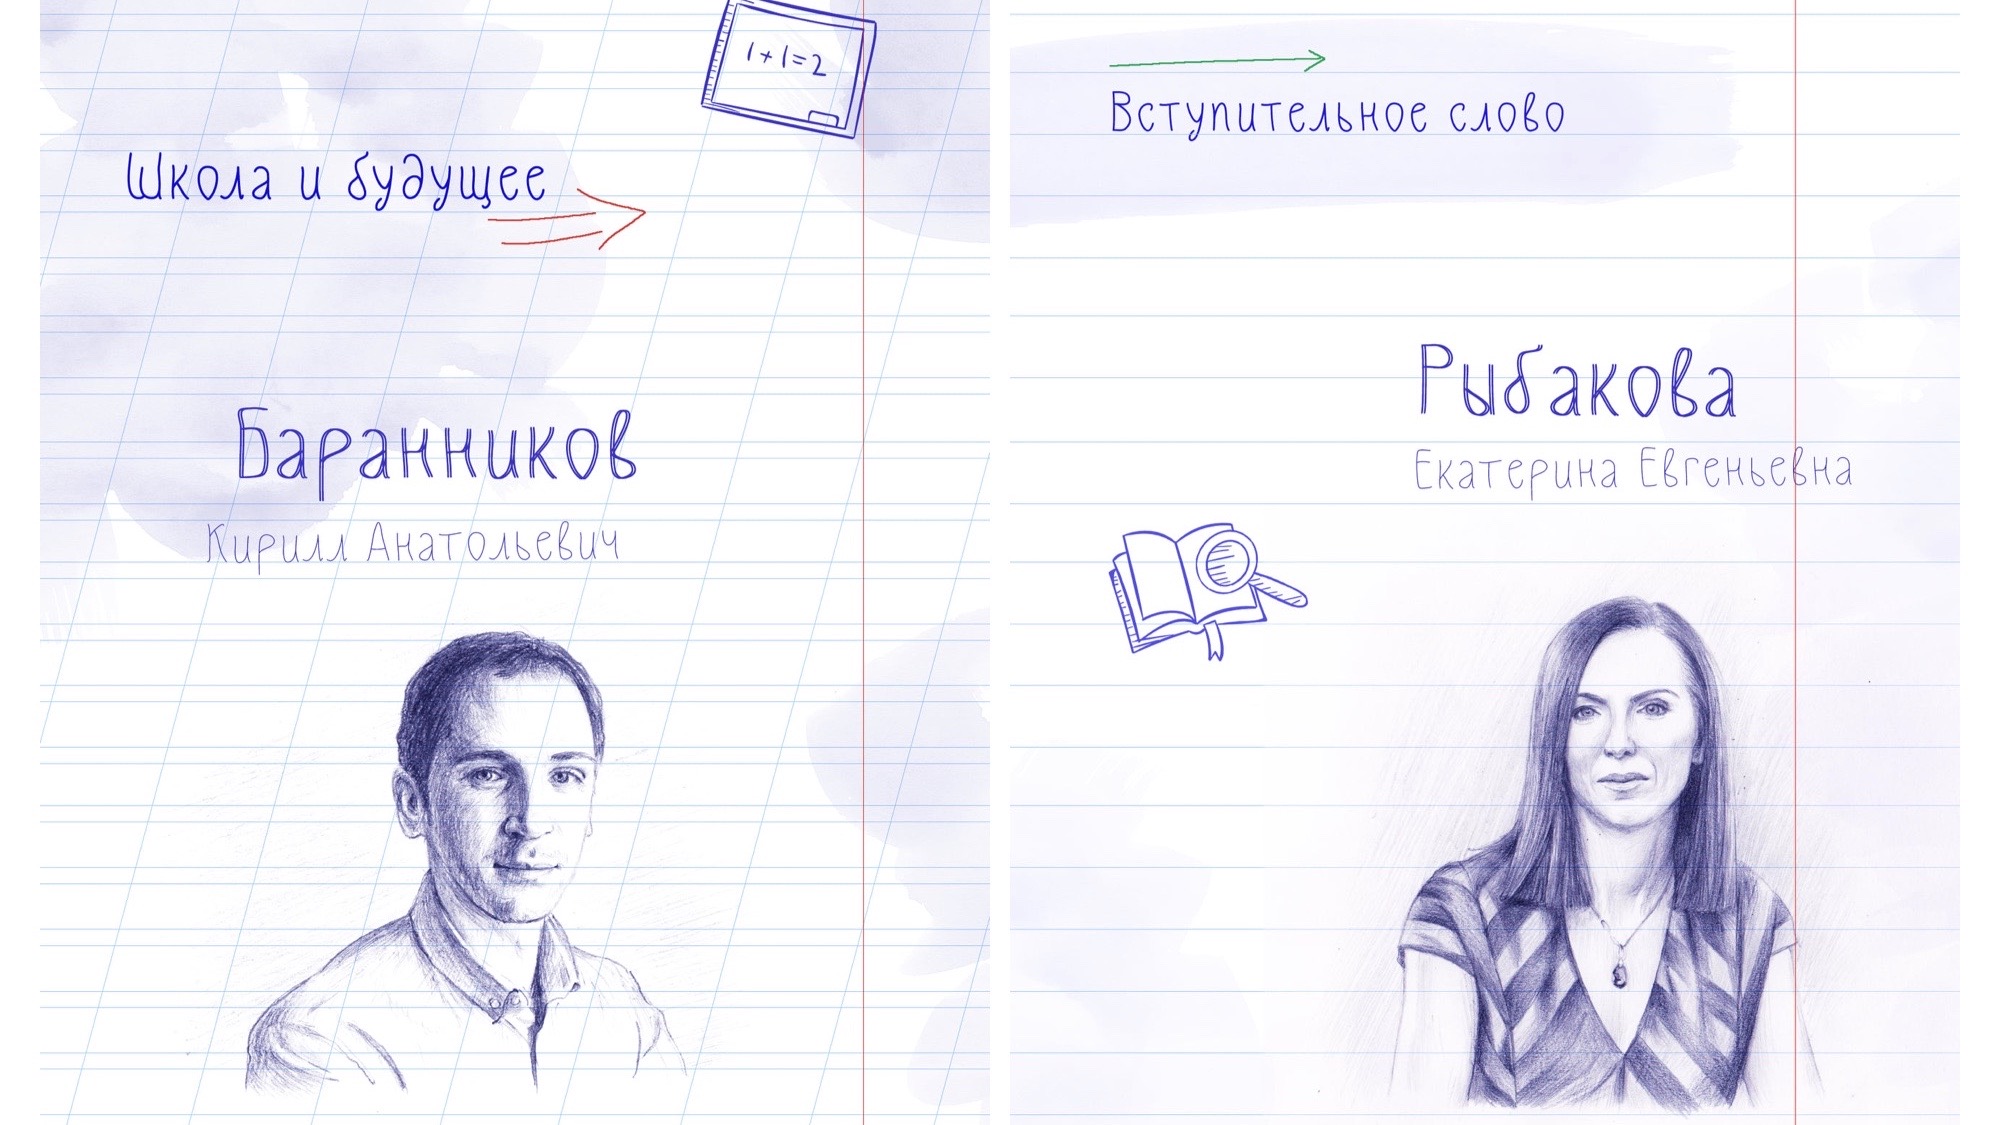 1+1=2
Школа и будущее
Баранников
Кирилл Анатольевич
Вступительное слово
Рыбакова
Екатерина Евгеньевна